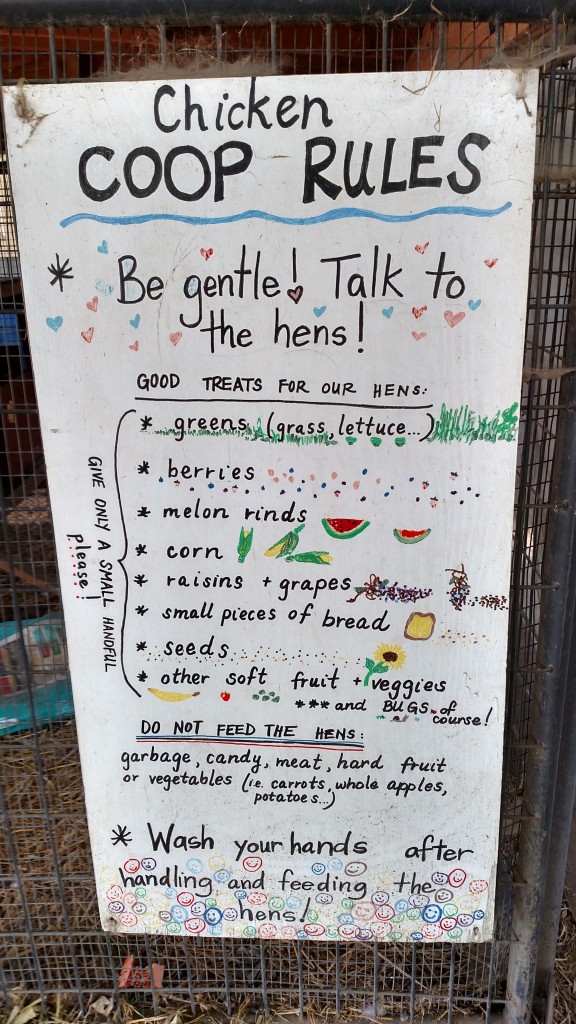 Chicken
COOP RULES
* Be gentle! Talk to
the hens!
GOOD TREATS FOR OUR HENS:
GIVE ONLY A SMALL HANDFUL
please!
* greens (grass, lettuce...)
* berries
* melon rinds
* corn
* raisins + grapes
* small pieces of bread
* seeds
* other soft fruit + veggies
*** and BUGS of
course!
DO NOT FEED THE HENS:
garbage, candy, meat, hard fruit
or vegetables (i.e. carrots, whole apples,
potatoes...)
* Wash your hands after
handling and feeding the
hens!